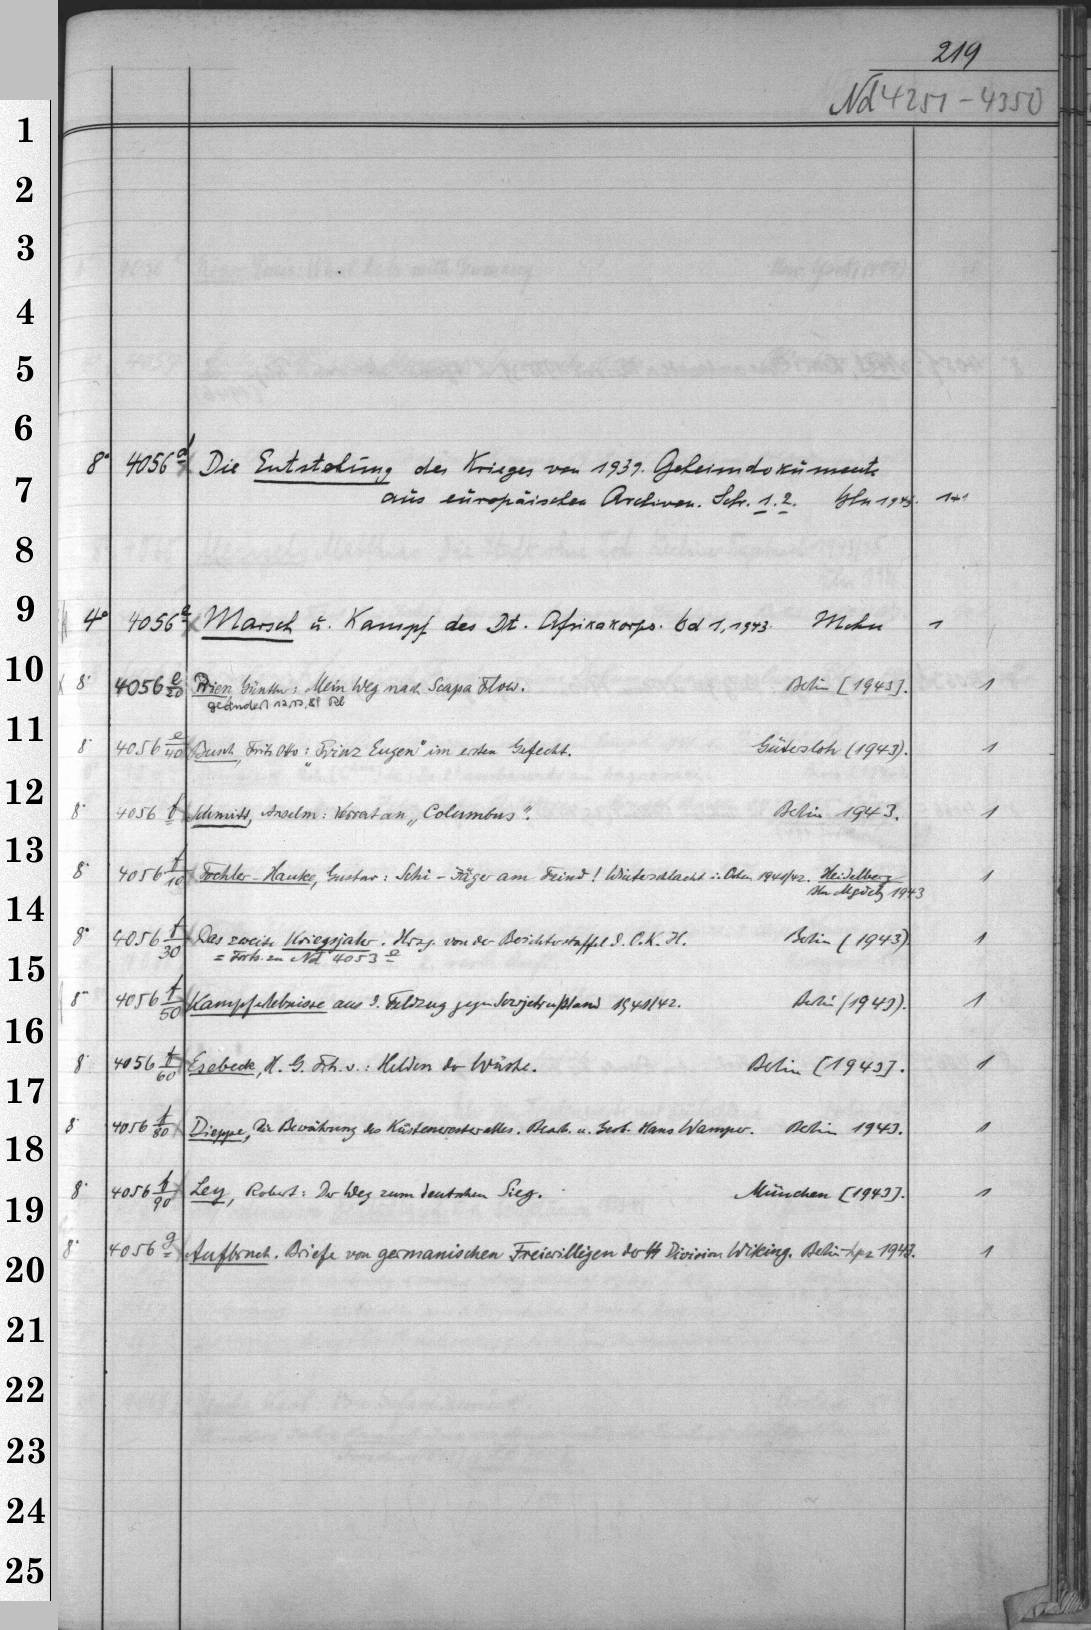 219
Nd 4251-4350
1
2
3
4
5
6
8° 4056 d Die Entstehung des Krieges von 1939. Geheimdokumente
7
aus europäischen Archiven. Schr. 1.2. Bln 1943. 1+1
8
9
4° 4056 e Marsch u. Kampf des Dt. Afrikakorps. Bd 1, 1943. Mchn 1
10
8° 4056 e/20 Prien, Günther: Mein Weg nach Scapa Flow. Berlin [1943]. 1
geändert 12.12.81
11
8° 4056 e/40 Busch, Fritz Otto: „Prinz Eugen" im ersten Gefecht. Gütersloh (1943). 1
12
8° 4056 f Schmidt, Anselm: Verrat an „Columbus". Berlin 1943. 1
13
8° 4056 f/10 Fochler-Hauke, Gustav: Schi-Jäger am Feind! Winterschlacht i. Osten 1941/42. Heidelberg 1
14
1943
8° 4056 f/30 Das zweite Kriegsjahr. Hrsg. von der Berichterstaffel d. O.K.H. Berlin (1943) 1
15
= Forts. zu Nd 4053 e
8° 4056 f/50 Kampferlebnisse aus d. Feldzug gegen Sowjetrußland 1941/42. Berlin (1943). 1
16
8° 4056 f/60 Esebeck, H. G. Frh. v.: Helden der Wüste. Berlin [1943]. 1
17
8° 4056 f/80 Dieppe, Die Bewährung des Küstenwestwalles. Bearb. u. Hans Wamper. Berlin 1943. 1
18
8° 4056 f/90 Ley, Robert: Der Weg zum deutschen Sieg. München [1943]. 1
19
8° 4056 g Aufbruch. Briefe von germanischen Freiwilligen der SS Division Wiking. Berlin-Lpz 1943. 1
20
21
22
23
24
25